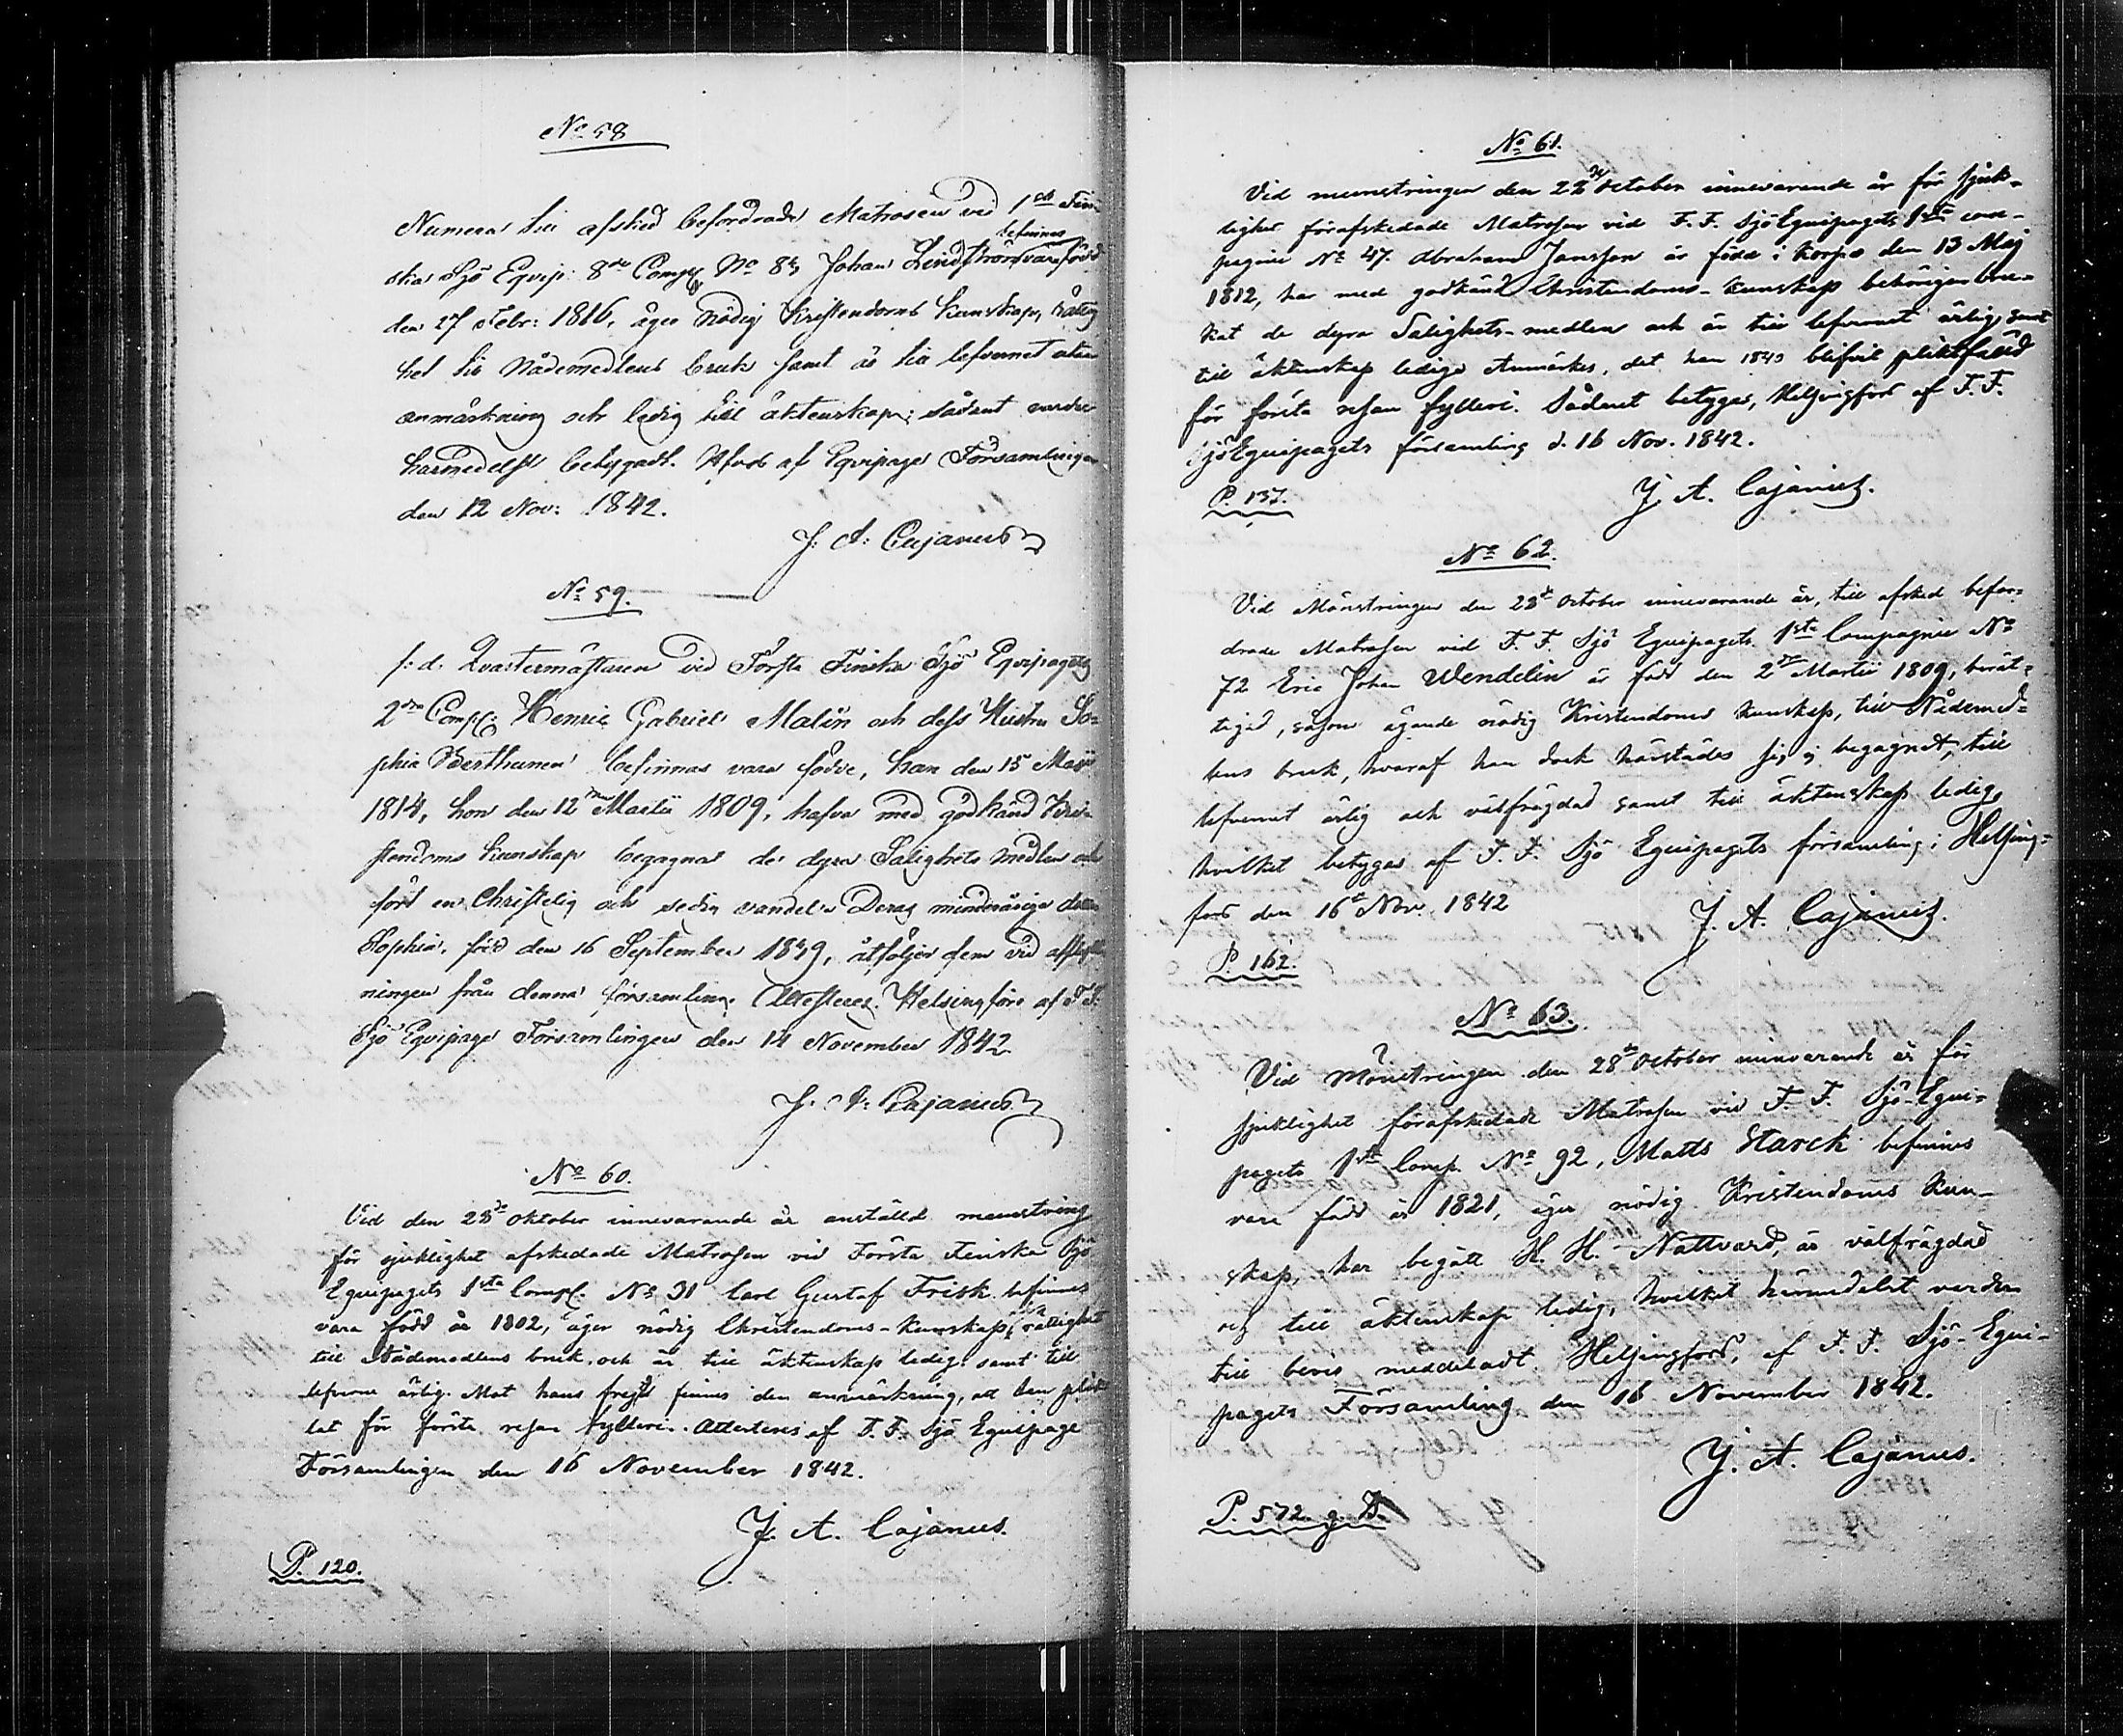 No 58
Numera till afsked befordrade Matrosen vid 1sta Fin-
ska Sjö Eqvip: 8de Comp: No 83 Johan Lindström befinnes vara född
den 27 Febr: 1816, äger nödig Kristendoms kunskap, rättig
het till Nådemedlens bruk samt är till lefvernet utan
anmärkning och ledig till äktenskap; sådant varder
härmedelst betygadt. Hfors af Eqvipage Församlingen
den 12 Nov: 1842.
J: A: Cajanus
No 59.
f: d: Qvartermästaren vid Första Finska Sjö Eqvipagets
2dra Comp: Henric Gabriel Malin och dess Hustru So-
phia befinnas vara födde, han den 15 Maji
1814, hon den 12 Martii 1809, hafva med godkänd Kri-
stendoms kunskap begagnat de dyra Salighets medlen och
fört en Christelig och sedig vandel. Deras minderåriga dotter
Sophia, född den 16 September 1839, åtföljer dem vid
ningen från denna församling. Attesteras. Helsingfors af F. F.
Sjö Eqvipage Församlingen den 14 November 1842
J: A: Cajanus
No 60.
Vid den 28de Oktober innevarande år anställd mönstring
för sjuklighet afskedade Matrosen vid Första Finska Sjö
Equipagets 1sta Comp. No 31 Carl Gustaf Frisk befinnes
vara född år 1802, äger nödig Christendoms-kunskap, rättighet
till Nådemedlens bruk, och är till äktenskap ledig, samt till
lefverne ärlig. Mot hans frejd finnes den anmärkning, att han plik
tat för första resan fylleri. Attesteras af F. F. Sjö Equipage
Församlingen den 16 November 1842.
J. A. Cajanus.
P. 120.
No 61.
Vid mönstringen den 28de October innevarande år för sjuk-
lighet förafskedade Matrosen vid F. F. Sjö Equipagets 1sta com-
pagnie No 47. Abraham Jansson är född i Korpo den 13 Maj
1812, har med godkänd Christendoms-kunskap behörigen bru-
kat de dyra Salighets-medlen och är till lefvernet ärlig, samt
till äktenskap ledig. Anmärkes, det han 1840 blifvit pliktfälld
för första resan fylleri. Sådant betygas, Helsingfors af F. F.
Sjö Equipagets församling d. 16 Nov. 1842.
J. A. Cajanus.
P. 137.
No 62.
Vid Mönstringen den 28de October innevarande år, till afsked befor-
drade Matrosen vid F. F. Sjö Equipagets 1sta Compagnie No
72 Eric Johan Wendelin är född den 2dra Martii 1809, berät-
tigad, såsom ägande nödig Kristendoms kunskap, till Nådemed-
lens bruk, hvaraf han dock härstädes sig ej begagnat, till
lefvernet ärlig och välfrägdad samt till äktenskap ledig,
hvilket betygas af F. F. Sjö Equipagets församling i Helsing-
fors den 16de Nov. 1842
J. A. Cajanus.
P. 162.
No 63.
Vid Mönstringen den 28de October innevarande år för
sjuklighet förafskedade Matrosen vid F. F. Sjö-Equi-
pagets 1sta Comp. No 92, Matts Starck befinnes
vara född år 1821, äger nödig Kristendoms kun-
skap, har begått H. H. Nattvard, är välfrägdad
och till äktenskap ledig, hvilket härmedelst varder
till bevis meddeladt. Helsingfors, af F. F. Sjö-Equi-
pagets Församling den 16 November 1842.
J. A. Cajanus.
P. 572. g. B.